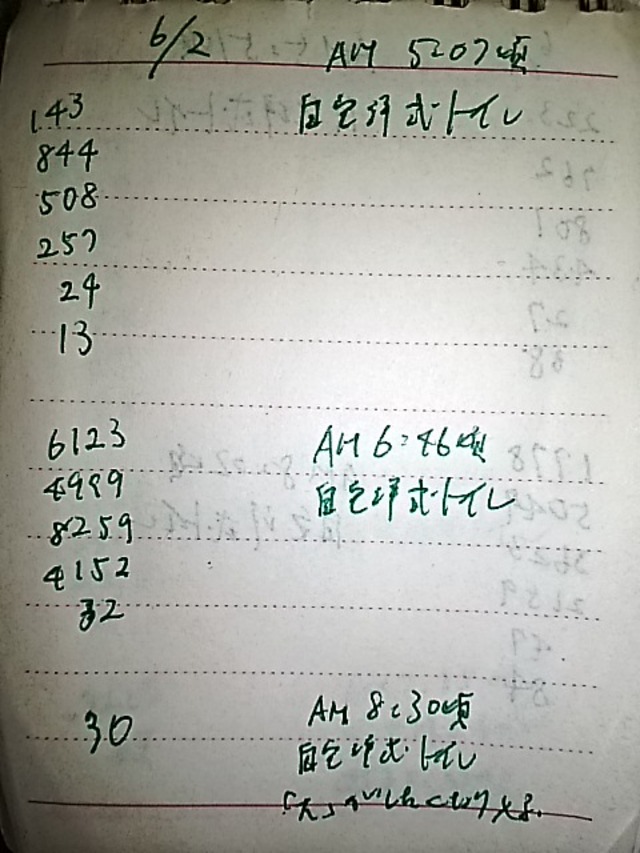 6/2 AM 5:07頃
143 自宅洋式トイレ
844
508
257
24
13
6123 AM 6:46頃
4999 自宅洋式トイレ
8259
4152
32
30 AM 8:30頃
自宅洋式トイレ
「大」がしたくなり